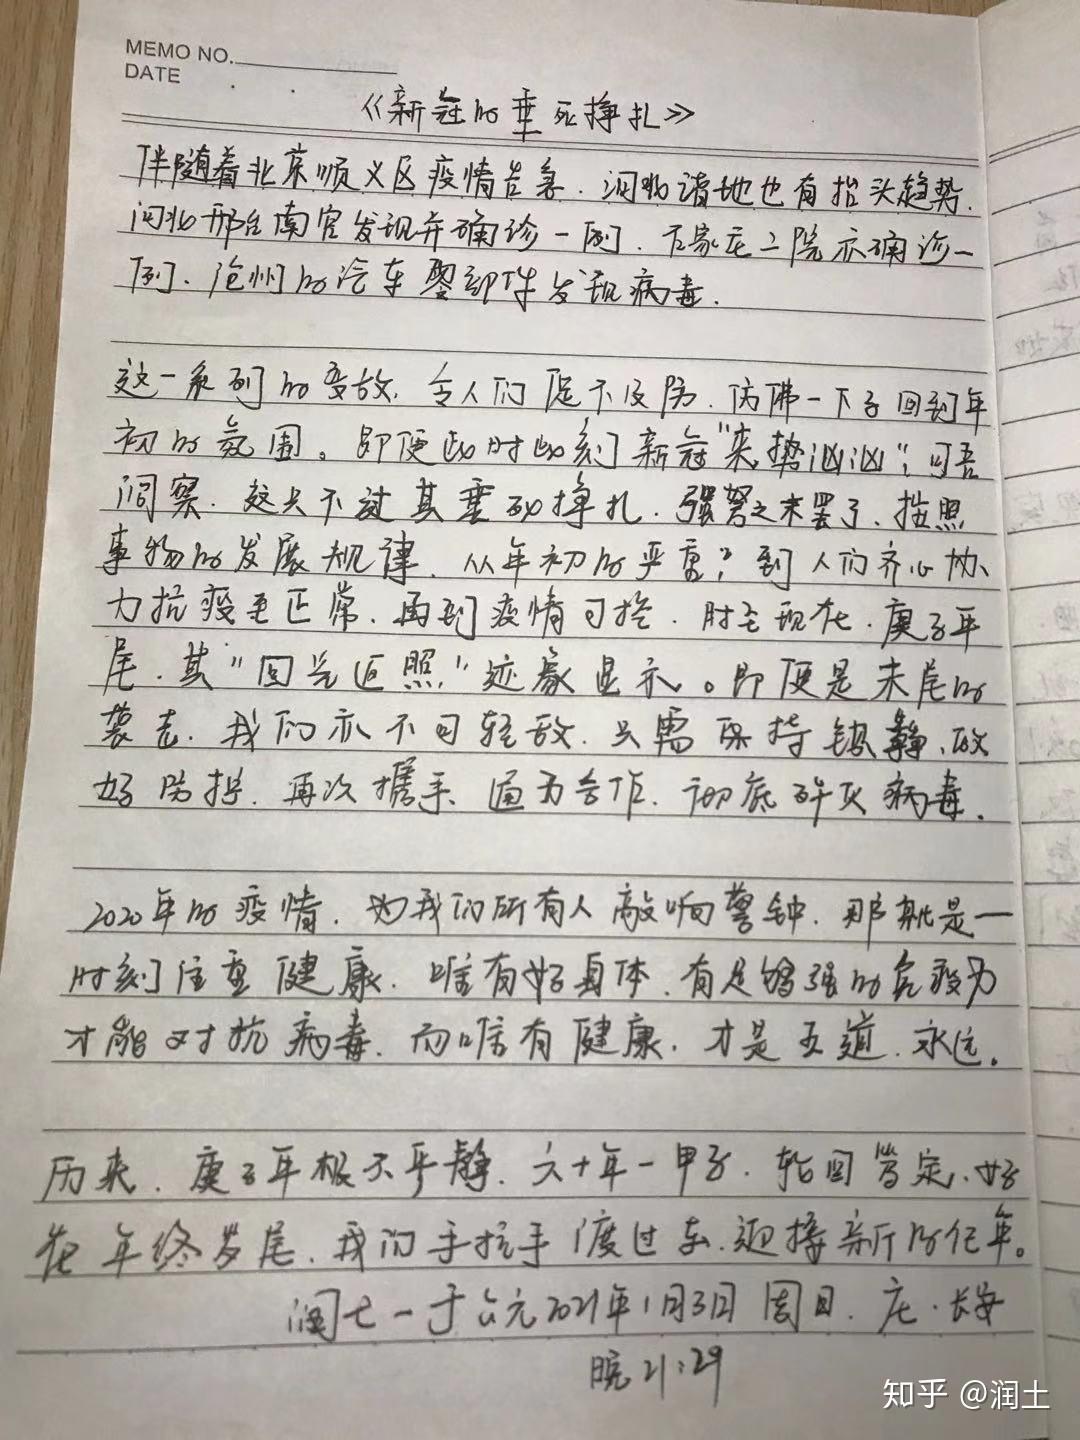 MEMO NO.
DATE
《新冠的垂死挣扎》
伴随着北京顺义区疫情告急.河北诸地也有抬头趋势.
河北邢台南宫发现并确诊一例.石家庄二院亦确诊一
例.沧州的汽车零部件发现病毒.
这一系列的变故.令人们促不及防.仿佛一下子回到年
初的氛围。即便此时此刻新冠"来势汹汹",可吾
洞察.这只不过其垂死挣扎.强弩之末罢了.按照
事物的发展规律.从年初的严重,到人们齐心协
力抗疫至正常.再到疫情可控.时至现在.庚子年
尾.其"回光返照"迹象显示。即便是末尾的
袭击.我们亦不可轻敌.只需保持镇静.做
好防护.再次携手.通力合作.彻底歼灭病毒.
2020年的疫情.为我们所有人敲响警钟.那就是一
时刻注重健康.唯有好身体.有足够强的免疫力
才能对抗病毒.而唯有健康.才是王道.永远。
历来.庚子年极不平静.六十年一甲子.轮回笃定.好
在年终岁尾.我们手拉手渡过去.迎接新的纪年。
润七一于公元2021年1月3日周日.庄·长安
晚21:29
知乎 @润土